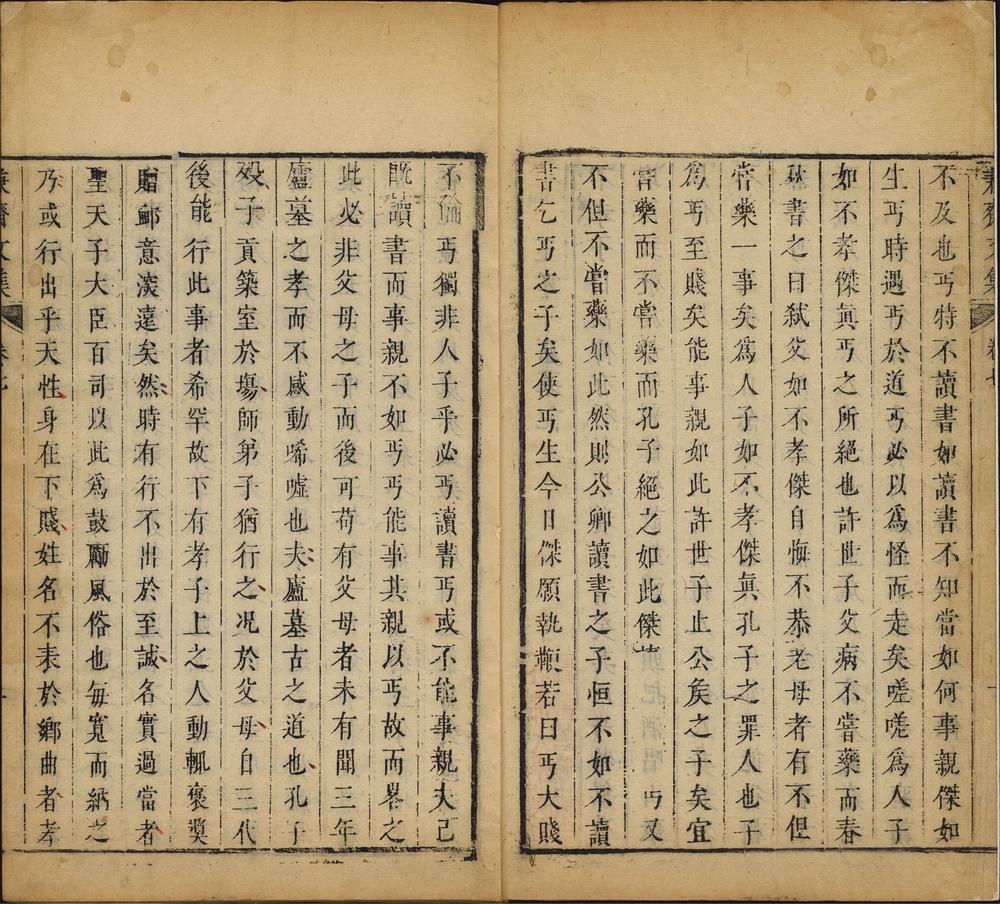 不及也丐特不讀書如讀書不知當如何事親傑如
生丐時遇丐於道丐必以為怪而走矣嗟嗟為人子
如不孝傑眞丐之所絕也許世子父病不嘗藥而春
秋書之曰弑父如不孝傑自悔不恭老母者有不但
嘗藥一事矣為人子如不孝傑眞孔子之罪人也子
為丐至賤矣能事親如此許世子止公矦之子矣宜
嘗藥而不嘗藥而孔子絕之如此傑 丐又
不但不嘗藥如此然則公卿讀書之子恒不如不讀
書乞丐之子矣使丐生今日傑願執鞭若曰丐大賤
不倫丐獨非人子乎必丐讀書丐或不能事親夫己
旣讀書而事親不如丐丐能事其親以丐故而畧之
此必非父母之子而後可苟有父母者未有聞三年
廬墓之孝而不感動唏噓也夫廬墓古之道也孔子
歿子貢築室於場師弟子猶行之况於父母自三代
後能行此事者希罕故下有孝子上之人動輒褒奬
贈䘏意淡遠矣然時有行不出於至誠名實過當者
聖天子大臣百司以此為鼓勵風俗也每寬而納之
乃或行出乎天性身在下賤姓名不表於鄉曲者孝
文集